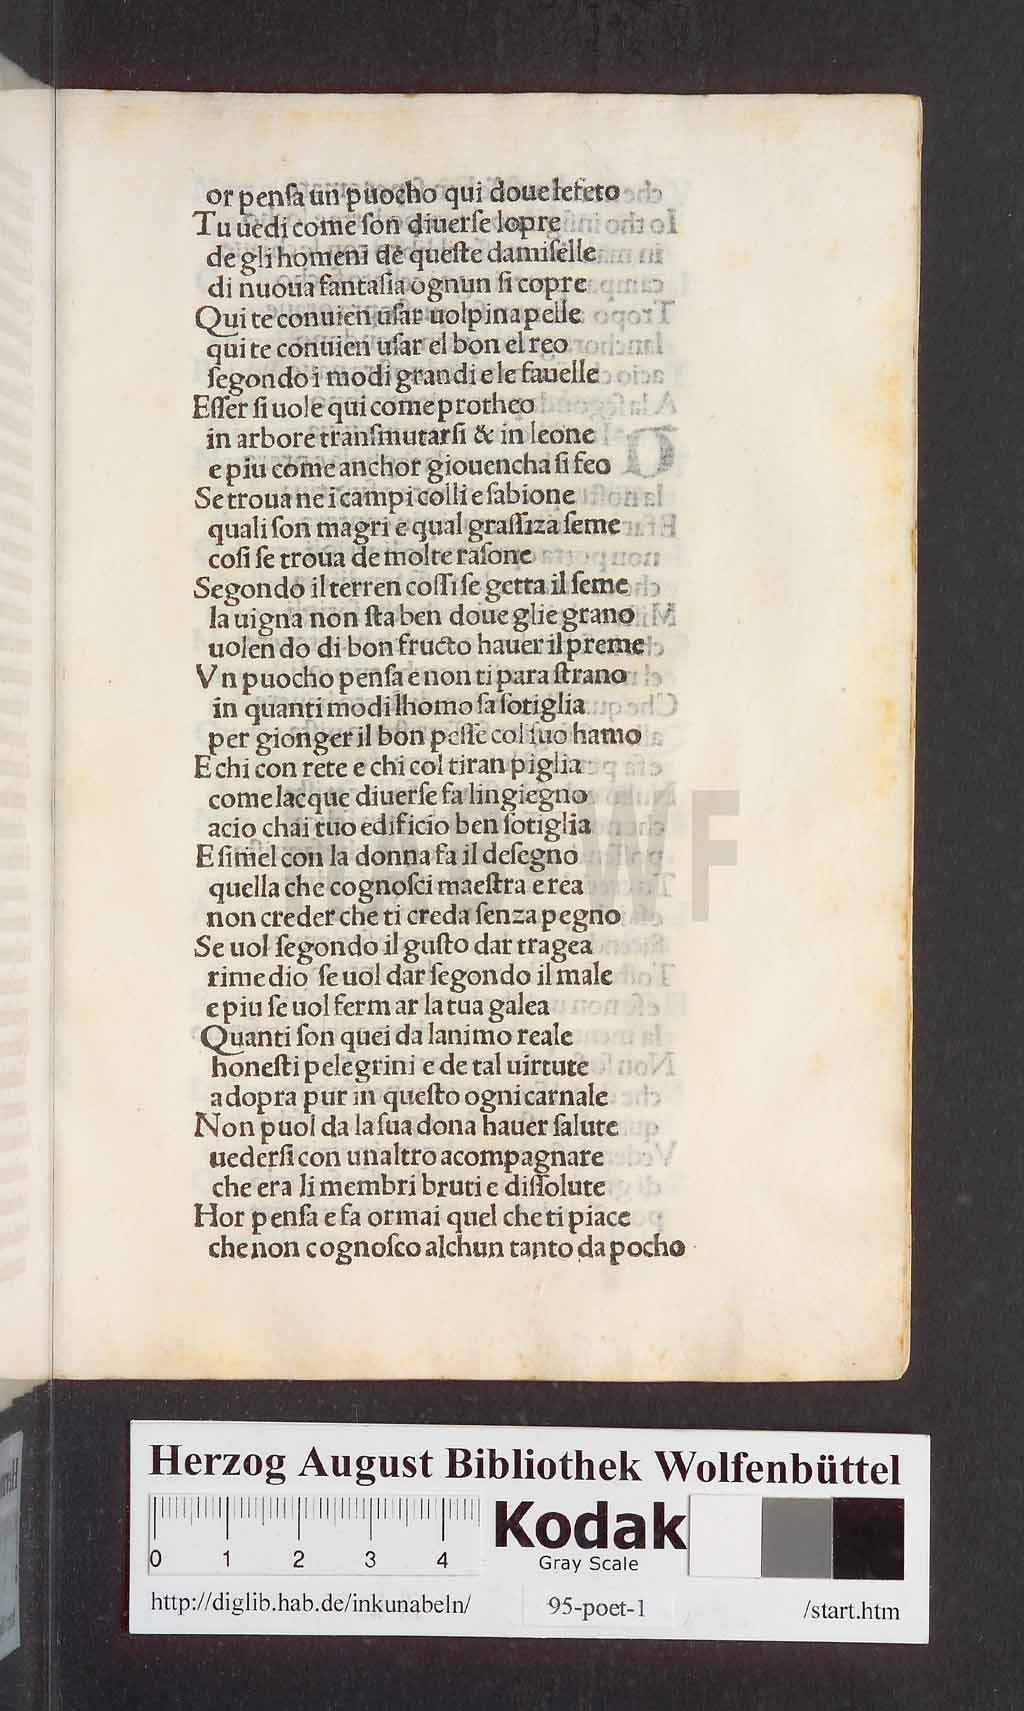 or penſa un puocho qui doue leſeto
Tu uedi come ſon diuerſe lopre
de gli homeni de queſte damiſelle
di nuoua fantaſia ognun ſi copre
Qui te conuien uſar uolpina pelle
qui te conuien uſar el bon el reo
ſegondo i modi grandi e le fauelle
Eſſer ſi uole qui come protheo
in arbore tranſmutarſi & in leone
e piu come anchor giouencha ſi feo
Se troua ne i campi colli e ſabione
quali ſon magri e qual graſſiza ſeme
coſi ſe troua de molte raſone
Segondo il terren coſſi ſe getta il ſeme
la uigna non ſta ben doue glie grano
uolen do di bon fructo hauer il preme
Vn puocho penſa e non ti para ſtrano
in quanti modi lhomo ſa ſotiglia
per gionger il bon peſſe col ſuo hamo
E chi con rete e chi col tiran piglia
come lacque diuerſe fa lingiegno
acio chai tuo edificio ben ſotiglia
E ſimel con la donna fa il deſegno
quella che cognoſci maeſtra e rea
non creder che ti creda ſenza pegno
Se uol ſegondo il guſto dar tragea
rimedio ſe uol dar ſegondo il male
e piu ſe uol ferm ar la tua galea
Quanti ſon quei da lanimo reale
honeſti pelegrini e de tal uirtute
adopra pur in queſto ogni carnale
Non puol da la ſua dona hauer ſalute
uederſi con unaltro acompagnare
che era li membri bruti e diſſolute
Hor penſa e fa ormai quel che ti piace
che non cognoſco alchun tanto da pocho
HAB WF
Herzog August Bibliothek Wolfenbüttel
0 1 2 3 4
Kodak
Gray Scale
http://diglib.hab.de/inkunabeln/ 95-poet-1 /start.htm